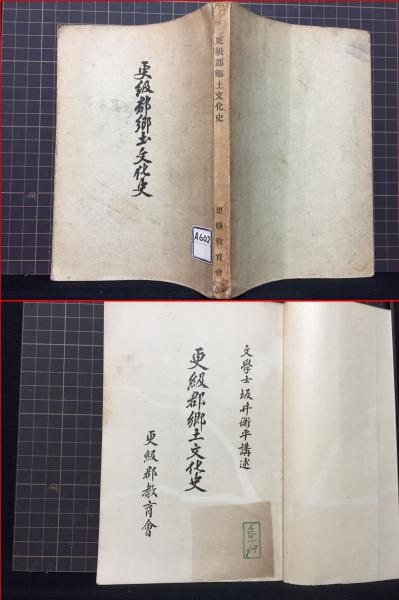 更級郡郷土文化史
更級郡郷土文化史
更級教育會
A602
文學士坂井衡平講述
更級郡郷土文化史
更級郡教育會